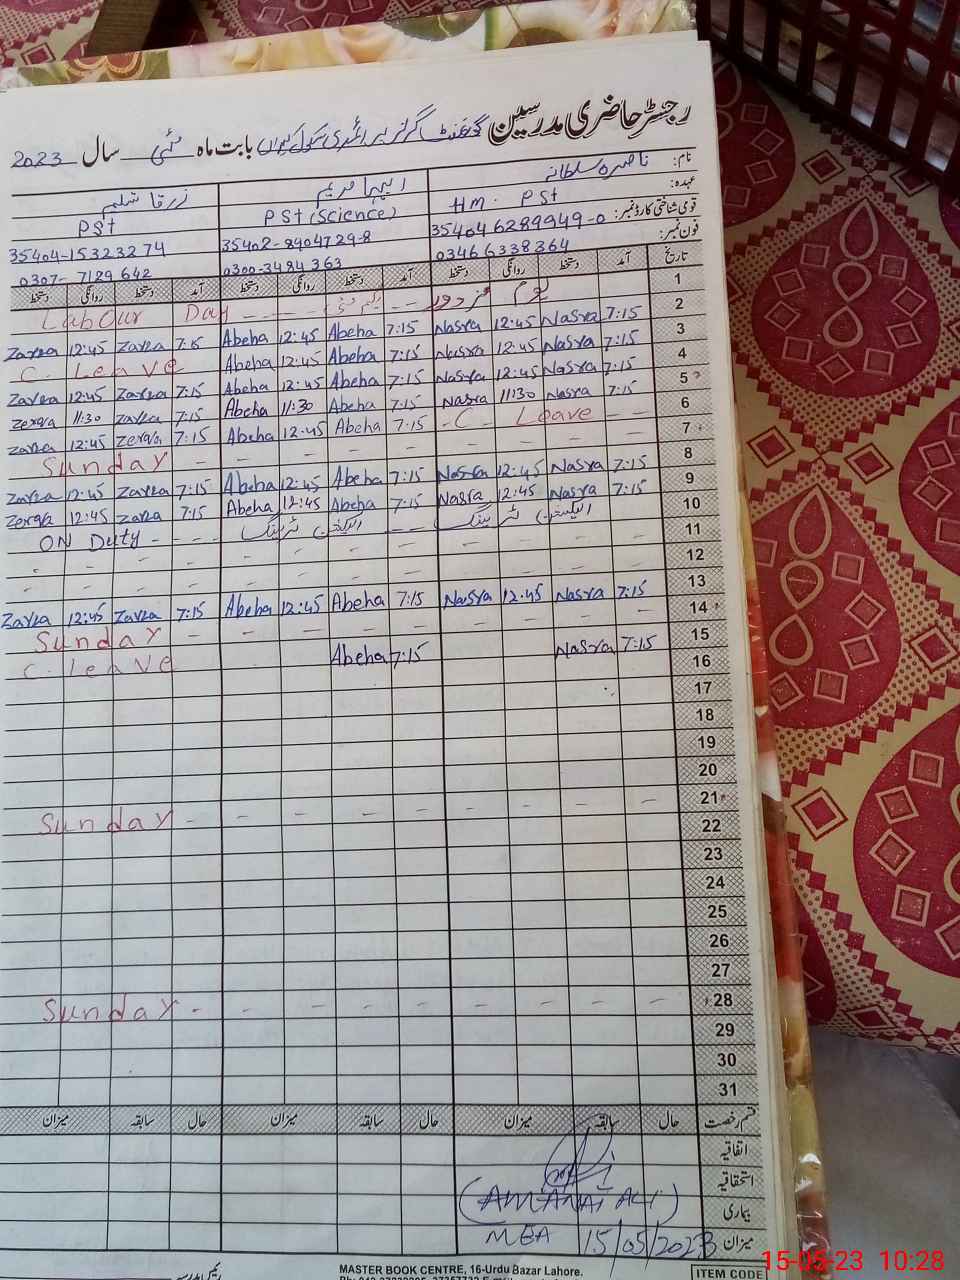 رجسٹر حاضری مدرسین گورنمنٹ گرلز پرائمری سکول بابت ماہ مئی سال 2023
نام: ناصرہ سلطانہ ابیہا مریم زرقا
عہدہ: HM. PSt PSt (Science) PSt
قومی شناختی کارڈ نمبر: 354046289949-0 35402-8904729-8 35404-15323274
فون نمبر: 03466338364 0300-3484363 0307-7129642
تاریخ آمد دستخط روانگی دستخط آمد دستخط روانگی دستخط آمد دستخط روانگی دستخط
1 یوم مزدور - - یکم مئی - - - - Labour Day
2 7:15 Nasra 12:45 Nasra 7:15 Abeha 12:45 Abeha 7:15 Zarqa 12:45 Zarqa
3 7:15 Nasra 12:45 Nasra 7:15 Abeha 12:45 Abeha C. Leave
4 7:15 Nasra 12:45 Nasra 7:15 Abeha 12:45 Abeha 7:15 Zarqa 12:45 Zarqa
5 7:15 Nasra 11:30 Nasra 7:15 Abeha 11:30 Abeha 7:15 Zarqa 11:30 Zerqa
6 - - C. Leave - 7:15 Abeha 12:45 Abeha 7:15 Zerqa 12:45 Zarqa
7 - - - - - - - - - Sunday
8 7:15 Nasra 12:45 Nasra 7:15 Abeha 12:45 Abeha 7:15 Zarqa 12:45 Zarqa
9 7:15 Nasra 12:45 Nasra 7:15 Abeha 12:45 Abeha 7:15 Zarqa 12:45 Zerqa
10 الیکشن ٹریننگ - - الیکشن ٹریننگ - - - ON Duty
11 - - - - - - - - - - - -
12 - - - - - - - - - - - -
13 7:15 Nasra 12:45 Nasra 7:15 Abeha 12:45 Abeha 7:15 Zarqa 12:45 Zarqa
14 - - - - - - - - - Sunday
15 7:15 Nasra 7:15 Abeha C. Leave
16
17
18
19
20
21 - - - - - - - - - Sunday
22
23
24
25
26
27
28 - - - - - - - - - Sunday
29
30
31
قسم رخصت حال سابقہ میزان حال سابقہ میزان حال سابقہ میزان
اتفاقیہ
استحقاقیہ
بیماری
(AMANAT ALI)
میزان
MEA 15/05/2023
MASTER BOOK CENTRE, 16-Urdu Bazar Lahore.
ITEM CODE
15-05-23 10:28